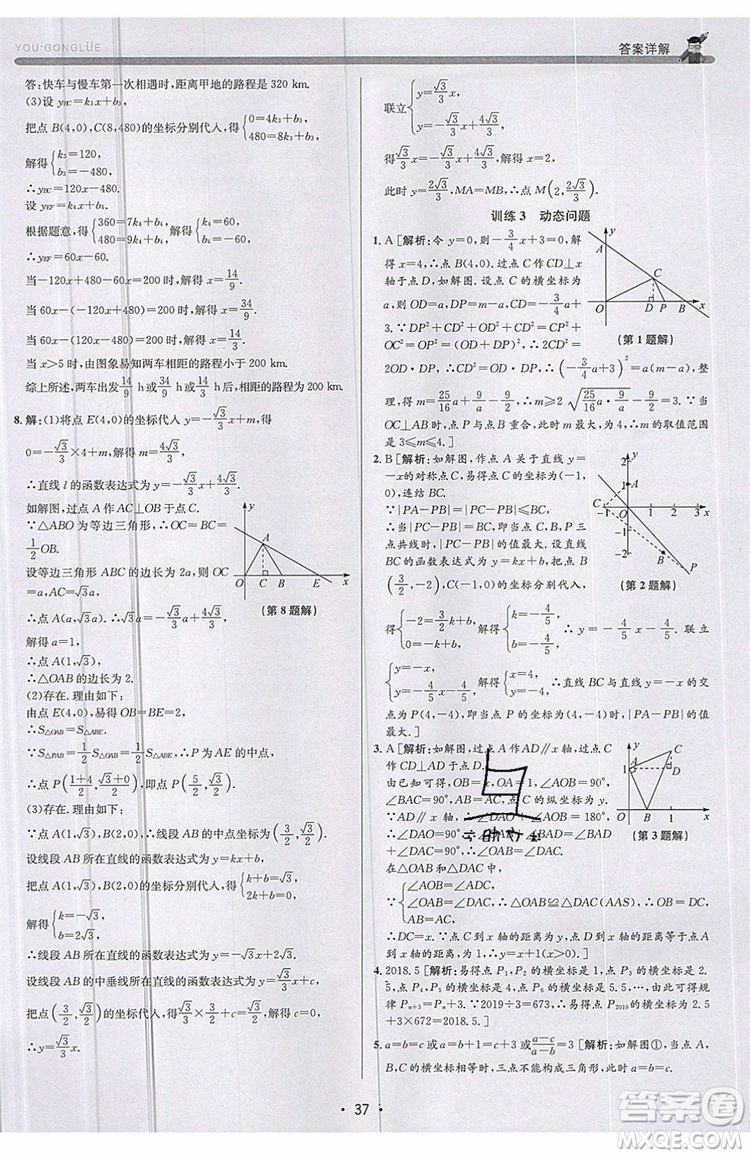 YOU·GONGLÜE
答案详解
答:快车与慢车第一次相遇时,距离甲地的路程是 320 km.
(3)设 y_BC=k₃x+b₃,
把点 B(4,0),C(8,480)的坐标分别代入,得{0=4k₃+b₃, 480=8k₃+b₃.
解得{k₃=120, b₃=-480.
∴y_BC=120x-480.
设 y_EF=k₄x+b₄,
根据题意,得{480=7k₄+b₄, 60=8k₄+b₄,
∴y_EF=60x-60.
当-120x+480-60x=200 时,解得 x=14/9.
当 60x-(-120x+480)=200 时,解得 x=34/9.
当 60x-(120x-480)=200 时,解得 x=14/3.
当 x>5 时,由图象易知两车相距的路程小于 200 km.
综上所述,两车出发14/9 h或34/9 h或14/3 h时,两车相距的路程为 200 km.
8.解:(1)将点 E(4,0)的坐标代入 y=-√3/3x+m,得
0=-√3/3×4+m,解得 m=4√3/3.
∴直线 l 的函数表达式为 y=-√3/3x+4√3/3.
如解图,过点 A 作 AC⊥OB 于点 C.
∵△ABO 为等边三角形,∴OC=
1/2OB.
设等边三角形 ABC 的边长为 2a,则 OC
=a,AC=√3a,
∴点 A(a,√3a). ∴√3a=-√3/3a+4√3/3.
解得 a=1,
∴点 A(1,√3).
∴△OAB 的边长为 2.
(2)存在.理由如下:
由点 E(4,0),易得 OB=BE=2,
∴S△OAB=S△ABE.
∵S△PAB=1/2S△OAB=1/2S△ABE,∴点 P 为 AE 的中点,
∴点 P((1+4)/2,(√3+0)/2),即点 P(5/2,√3/2).
(3)存在.理由如下:
∵点 A(1,√3),B(2,0),∴线段 AB 的中点坐标为(3/2,√3/2).
设线段 AB 所在直线的函数表达式为 y=kx+b,
把点 A(1,√3),B(2,0)的坐标分别代入,得{k+b=√3, 2k+b=0.
解得{k=-√3, b=2√3.
∴线段 AB 所在直线的函数表达式为 y=-√3x+2√3.
设线段 AB 的中垂线所在直线的函数表达式为 y=√3/3x+c,
把点(3/2,√3/2)的坐标代入,得√3/2=√3/3×3/2+c,解得 c=0,
∴y=√3/3x.
y
A
O
C
B
E
x
(第 8 题解)
联立{y=√3/3x, y=-√3/3x+4√3/3,解得 x=2.
此时 y=2√3/3,MA=MB,∴点 M(2,2√3/3).
训练 3 动态问题
1. A [解析:令 y=0,则-3/4x+3=0,解
得 x=4.∴点 B(4,0).过点 C 作 CD⊥x
轴于点 D,如解图.设点 C 的横坐标为
a,则 OD=a,DP=m-a,CD=-3/4a+
3.∵DP²+CD²+OD²+CD²=OP²=
(OD+DP)²,∴CD²=OD·DP,2CD²=
2OD·DP,∴(-3/4a+3)²=a(m-a).整
理,得 m=25/16a+9/a-9/2≥2√(25/16a·9/a)-9/2=3.∵当
OC⊥AB 时,点 P 与点 B 重合,此时 m 最大,为 4,∴m 的取值范围
是 3≤m≤4.]
y
A
C
O
D
P
x
(第 1 题解)
2. B [解析:如解图,作点 A 关于直线 y=
-x 的对称点 C,易得点 C 的坐标为(-1,
0),连结 BC,
∴|PA-PB|=|PC-PB|≤BC.
∴当点 P 在 CB 的延长线上(点 P,C,B 三
点共线)时,|PC-PB|的值最大,
即|PA-PB|的值最大.设直线 BC
的函数表达式为 y=kx+b,
把点 B,C 的坐标分别代入,
得{-2=3/2k+b, 0=-k+b,解得{k=-4/5, b=-4/5.∴y=-4/5x-4/5.联立
{y=-x, y=-4/5x-4/5,解得{x=4, y=-4.∴直线 BC 与直线 y=-x 的交
点坐标为(4,-4),∴点 P 的坐标为(4,-4)时,|PA-PB|的值
最大.]
y
x
P
(第 2 题解)
3. A [解析:如解图,过点 A 作 AD∥x 轴,作
由已知可得,OB=x,OA=1,∠AOB=90°,
∠BAC=90°,AB=AC,点 C 的纵坐标为 y.
∵AD∥x 轴,∴∠DAO+∠AOB=180°,
∴∠DAO=90°,∴∠OAB+∠BAD=∠BAD
+∠DAC=90°,∴∠OAB=∠DAC.
在△OAB 和△DAC 中,
∵{∠AOB=∠ADC, ∠OAB=∠DAC, AB=AC, ∴△OAB≌△DAC(AAS),∴OB=CD,
∴DC=x.∵点 C 到 x 轴的距离为 y,点 D 到 x 轴的距离等
于点 A 到 x 轴的距离 1,∴y=x+1(x>0).]
y
C
A
D
B
x
(第 3 题解)
4. 2018.5 [解析:易得点 P₁,P₂ 的横坐标是 1,点 P₃ 的横坐标是 2.
5,点 P₄,P₅ 的横坐标是 4,点 P₆ 的横坐标是 5.5,…,由此可得出规
律 Pₙ₊₃=Pₙ+3.∵2019÷3=673,∴点 P₂₀₁₉的横坐标为 2.5
+3×672=2018.5.]
5. a=b=c 或 a=b+1=c+1 或(a-c)/(b-c)=(a-c)/(a-b)[解析:如解图①,当
a=b=c 时,三点横坐标相同,三点不能构成三角形,此时
37
答案圈
MXQE.COM